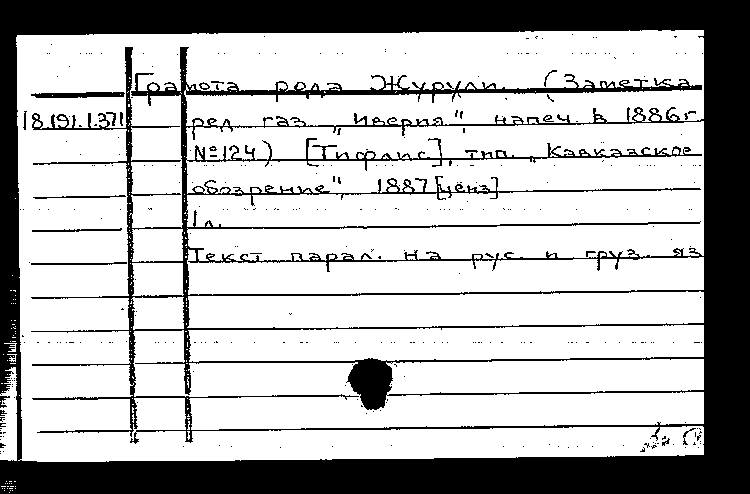 Грамота рода Журули. (Заметка
18.191.1.371 ред газ „Иверия“, напеч. в 1886г
№124) [Тифлис], тип. „Кавказское
обозрение“, 1887 [ценз]
1 л.
Текст парал. на рус. и груз. яз